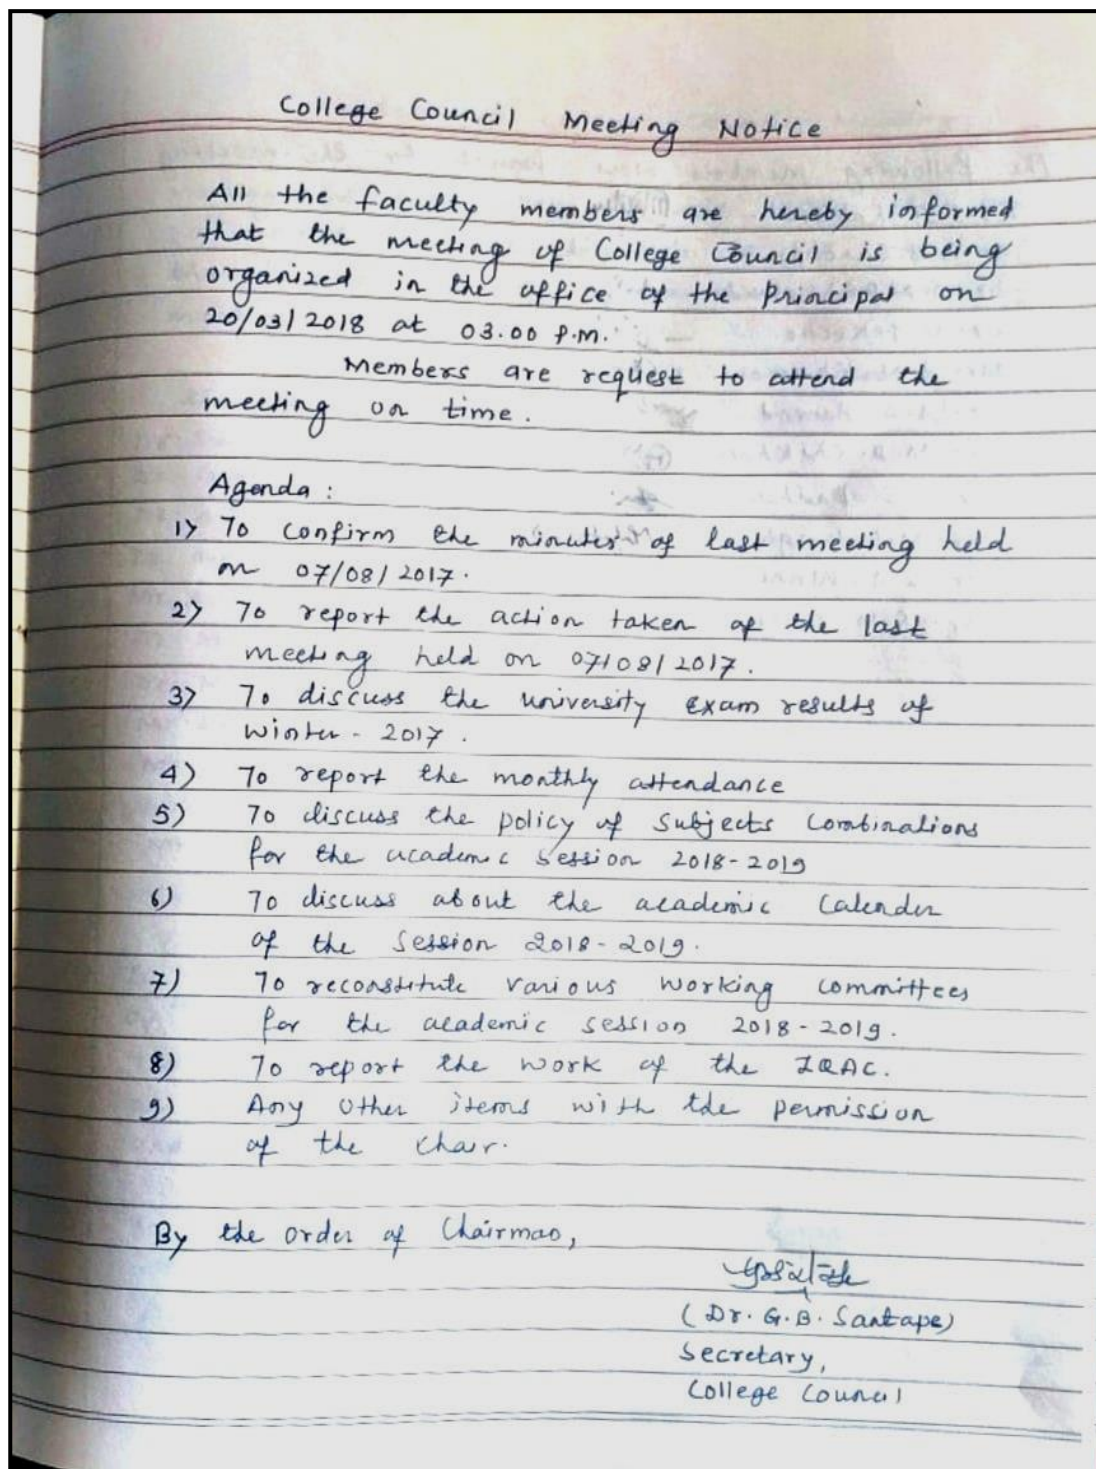 College Council Meeting Notice
All the faculty members are hereby informed
that the meeting of College Council is being
organized in the office of the Principal on
20/03/2018 at 03.00 P.M.
Members are request to attend the
meeting on time.
Agenda :
1) To confirm the minutes of last meeting held
on 07/08/2017.
2) To report the action taken of the last
meeting held on 07/08/2017.
3) To discuss the university exam results of
winter - 2017.
4) To report the monthly attendance
5) To discuss the policy of subjects combinations
for the academic session 2018-2019
6) To discuss about the academic calender
of the session 2018-2019.
7) To reconstitute various working committees
for the academic session 2018-2019.
8) To report the work of the IQAC.
9) Any other items with the permission
of the chair.
By the order of Chairman,
(Dr. G. B. Santape)
Secretary,
College Council